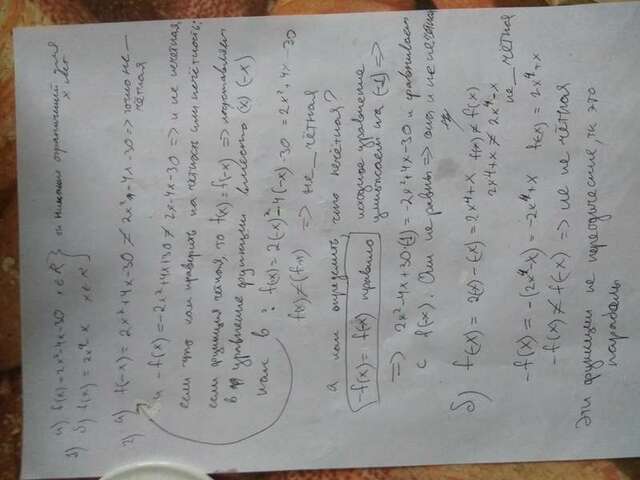 1) а) f(x) = 2x²-4x-30 x∈R } тк никаких ограничений для
б) f(x) = 2x⁴-x x∈R } x нет
2) а) f(-x) = 2x²+4x-30 ≠ 2x²-4x-30 => точно не_
чётная
и -f(x) = -2x²+4x+30 ≠ 2x²-4x-30 => и не нечётная
если что как проверить на чётность или нечётность:
если функция чётная, то f(x) = f(-x) => подставляем
в уравнение функции вместо (x) (-x)
как в : f(-x) = 2(-x)²-4(-x)-30 = 2x²+4x-30
f(x) ≠ f(-x) => не_чётная
а как определить что нечётная?
-f(x) = f(-x) правило исходное уравнение
умножаем на (-1) =>
=> 2x²-4x+30(-1) = -2x²+4x+30 и сравниваем
с f(x). Они не равны => она и не нечётная
б) f(-x) = 2(-x)-(-x) = 2x⁴+x f(x) ≠ f(-x)
2x⁴+x ≠ 2x⁴-x
не_чётная
-f(x) = -(2x⁴-x) = -2x⁴+x f(-x) = 2x⁴+x
-f(x) ≠ f(-x) => не нечётная
Эти функции не периодические, тк это
параболы